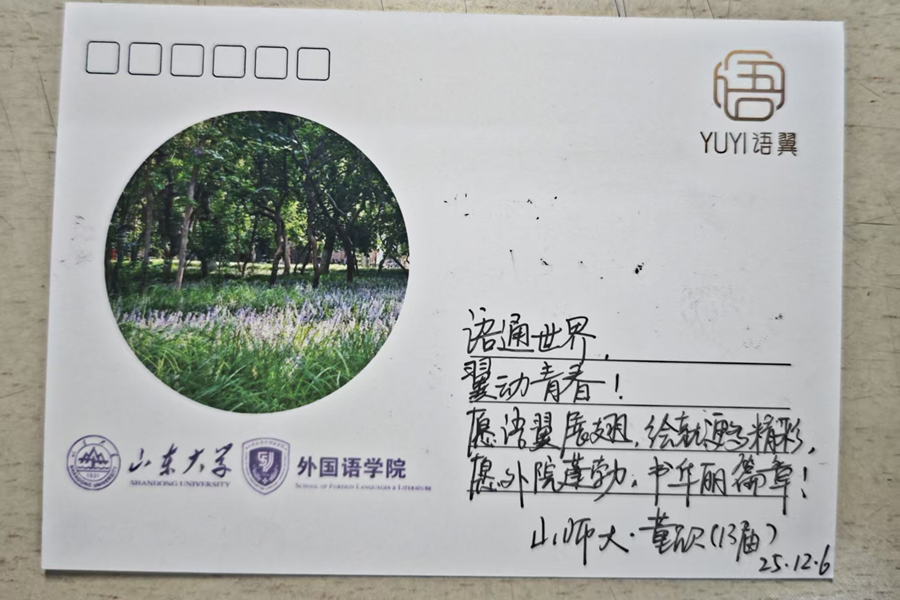 语
YUYI 语翼
语通世界,
翼动青春!
愿语翼展翅,绘就语言精彩,
愿外院蓬勃,书华丽篇章!
山师大·董欣(13届)
25.12.6
山东大学
SHANDONG UNIVERSITY
1901
外国语学院
SCHOOL OF FOREIGN LANGUAGES & LITERATURE